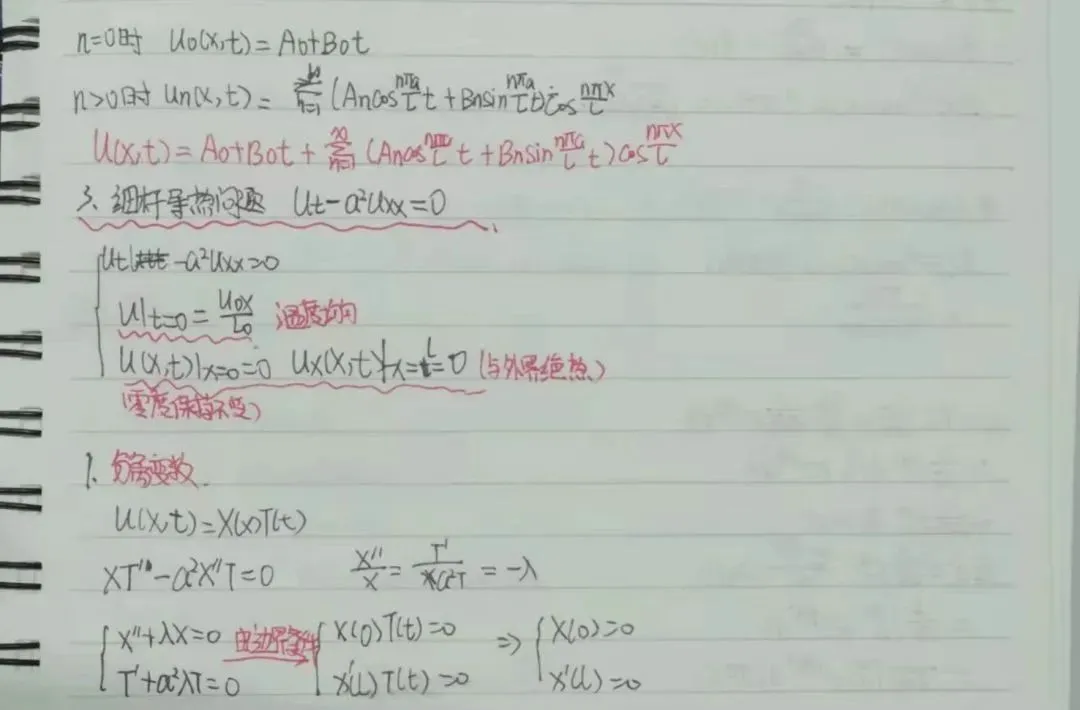 n=0时 U₀(x,t)=A₀+B₀t
n>0时 Un(x,t)= ∑_{n=1}^{∞} (Ancos nπa/L t + Bnsin nπa/L t) cos nπx/L
U(x,t)=A₀+B₀t+ ∑_{n=1}^{∞} (Ancos nπa/L t + Bnsin nπa/L t) cos nπx/L
3、细杆导热问题 Ut-a²Uxx=0
Ut -a²Uxx=0
U|t=0 = U₀x/L 温度均匀
U(x,t)|x=0=0 Ux(x,t)|x=L=0 (与外界绝热)
(零度保持不变)
1. 分离变数
U(x,t)=X(x)T(t)
XT'-a²X''T=0 X''/X = T'/a²T = -λ
X''+λX=0 由边界条件 X(0)T(t)=0 ⇒ X(0)=0
T'+a²λT=0 X'(L)T(t)=0 X'(L)=0